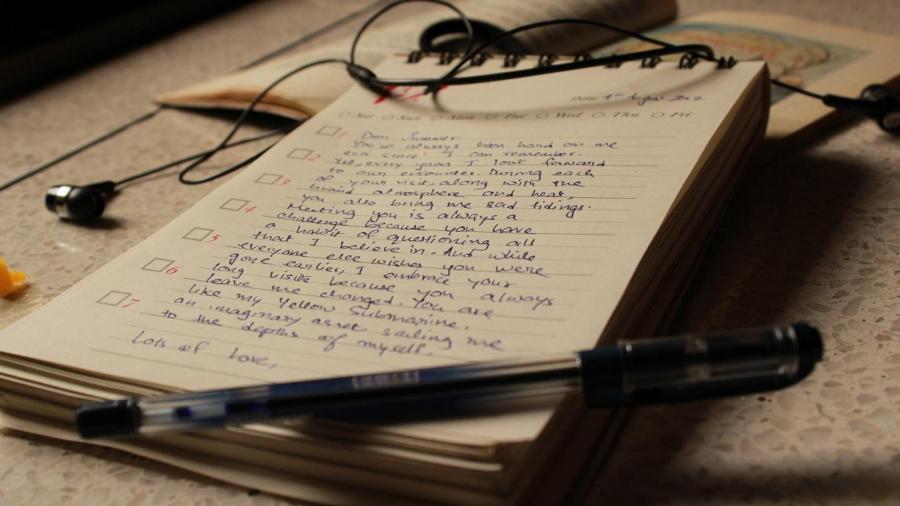 Date
Sat Sun Mon Tue Wed Thu Fri
1 Dear Summer,
You've always been hard on me
2 ever since I can remember.
Yet, every year I look forward
to our encounter. During each
3 of your visit, along with the
atmosphere and heat,
you also bring me sad tidings.
4 Meeting you is always a
challenge because you have
a habit of questioning all
5 that I believe in. And while
everyone else wishes you were
gone earlier, I embrace your
6 long visits because you always
leave me changed. You are
like my Yellow Submarine.
7 an imaginary asset sailing me
to the depths of myself.
Lots of love,